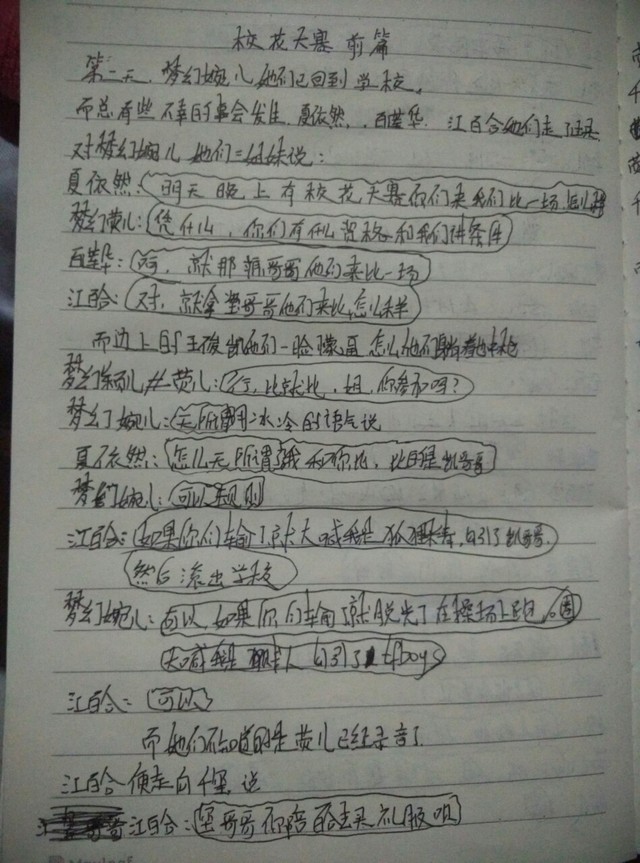 校花大赛 前篇
第二天,梦幻婉儿她们已回到学校,
而总有些不幸的事会发生,夏依然,百莲华,江百合她们走了过来
对梦幻婉儿她们三姐妹说:
夏依然:明天晚上有校花大赛你们来我们比一场,怎么样
梦幻萤儿:凭什么,你们有什么资格和我们讲条件
百莲华:就那凯哥哥他们来比一场
江百合:对,就拿玺哥哥他们来比,怎么样
而边上的王俊凯他们一脸懵逼 怎么他们躺着也中枪
梦幻儿,梦萤儿:行,比就比,姐,你参加吗?
梦幻婉儿:无所谓用冰冷的语气说
夏依然:怎么无所谓了我和你比,比的是凯哥哥
梦幻婉儿:可以规则
江百合:如果你们输了就大喊我是狐狸精,勾引了凯哥哥,
然后滚出学校
梦幻婉儿:可以,如果你们输了就脱光了在操场上跑圈
大喊我是人勾引了tfboys
江百合:可以
而她们不知道的是萤儿已经录音了
江百合便走向千玺说
江百合:玺哥哥你陪百合去买礼服呗